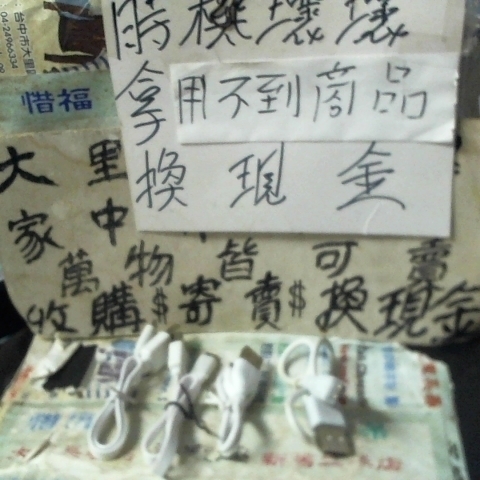 台中市大里區
04-24966334
惜福
時機壞壞
拿用不到商品
換現金
大里
家中
萬物皆可賣
收購$寄賣$換現金
惜福